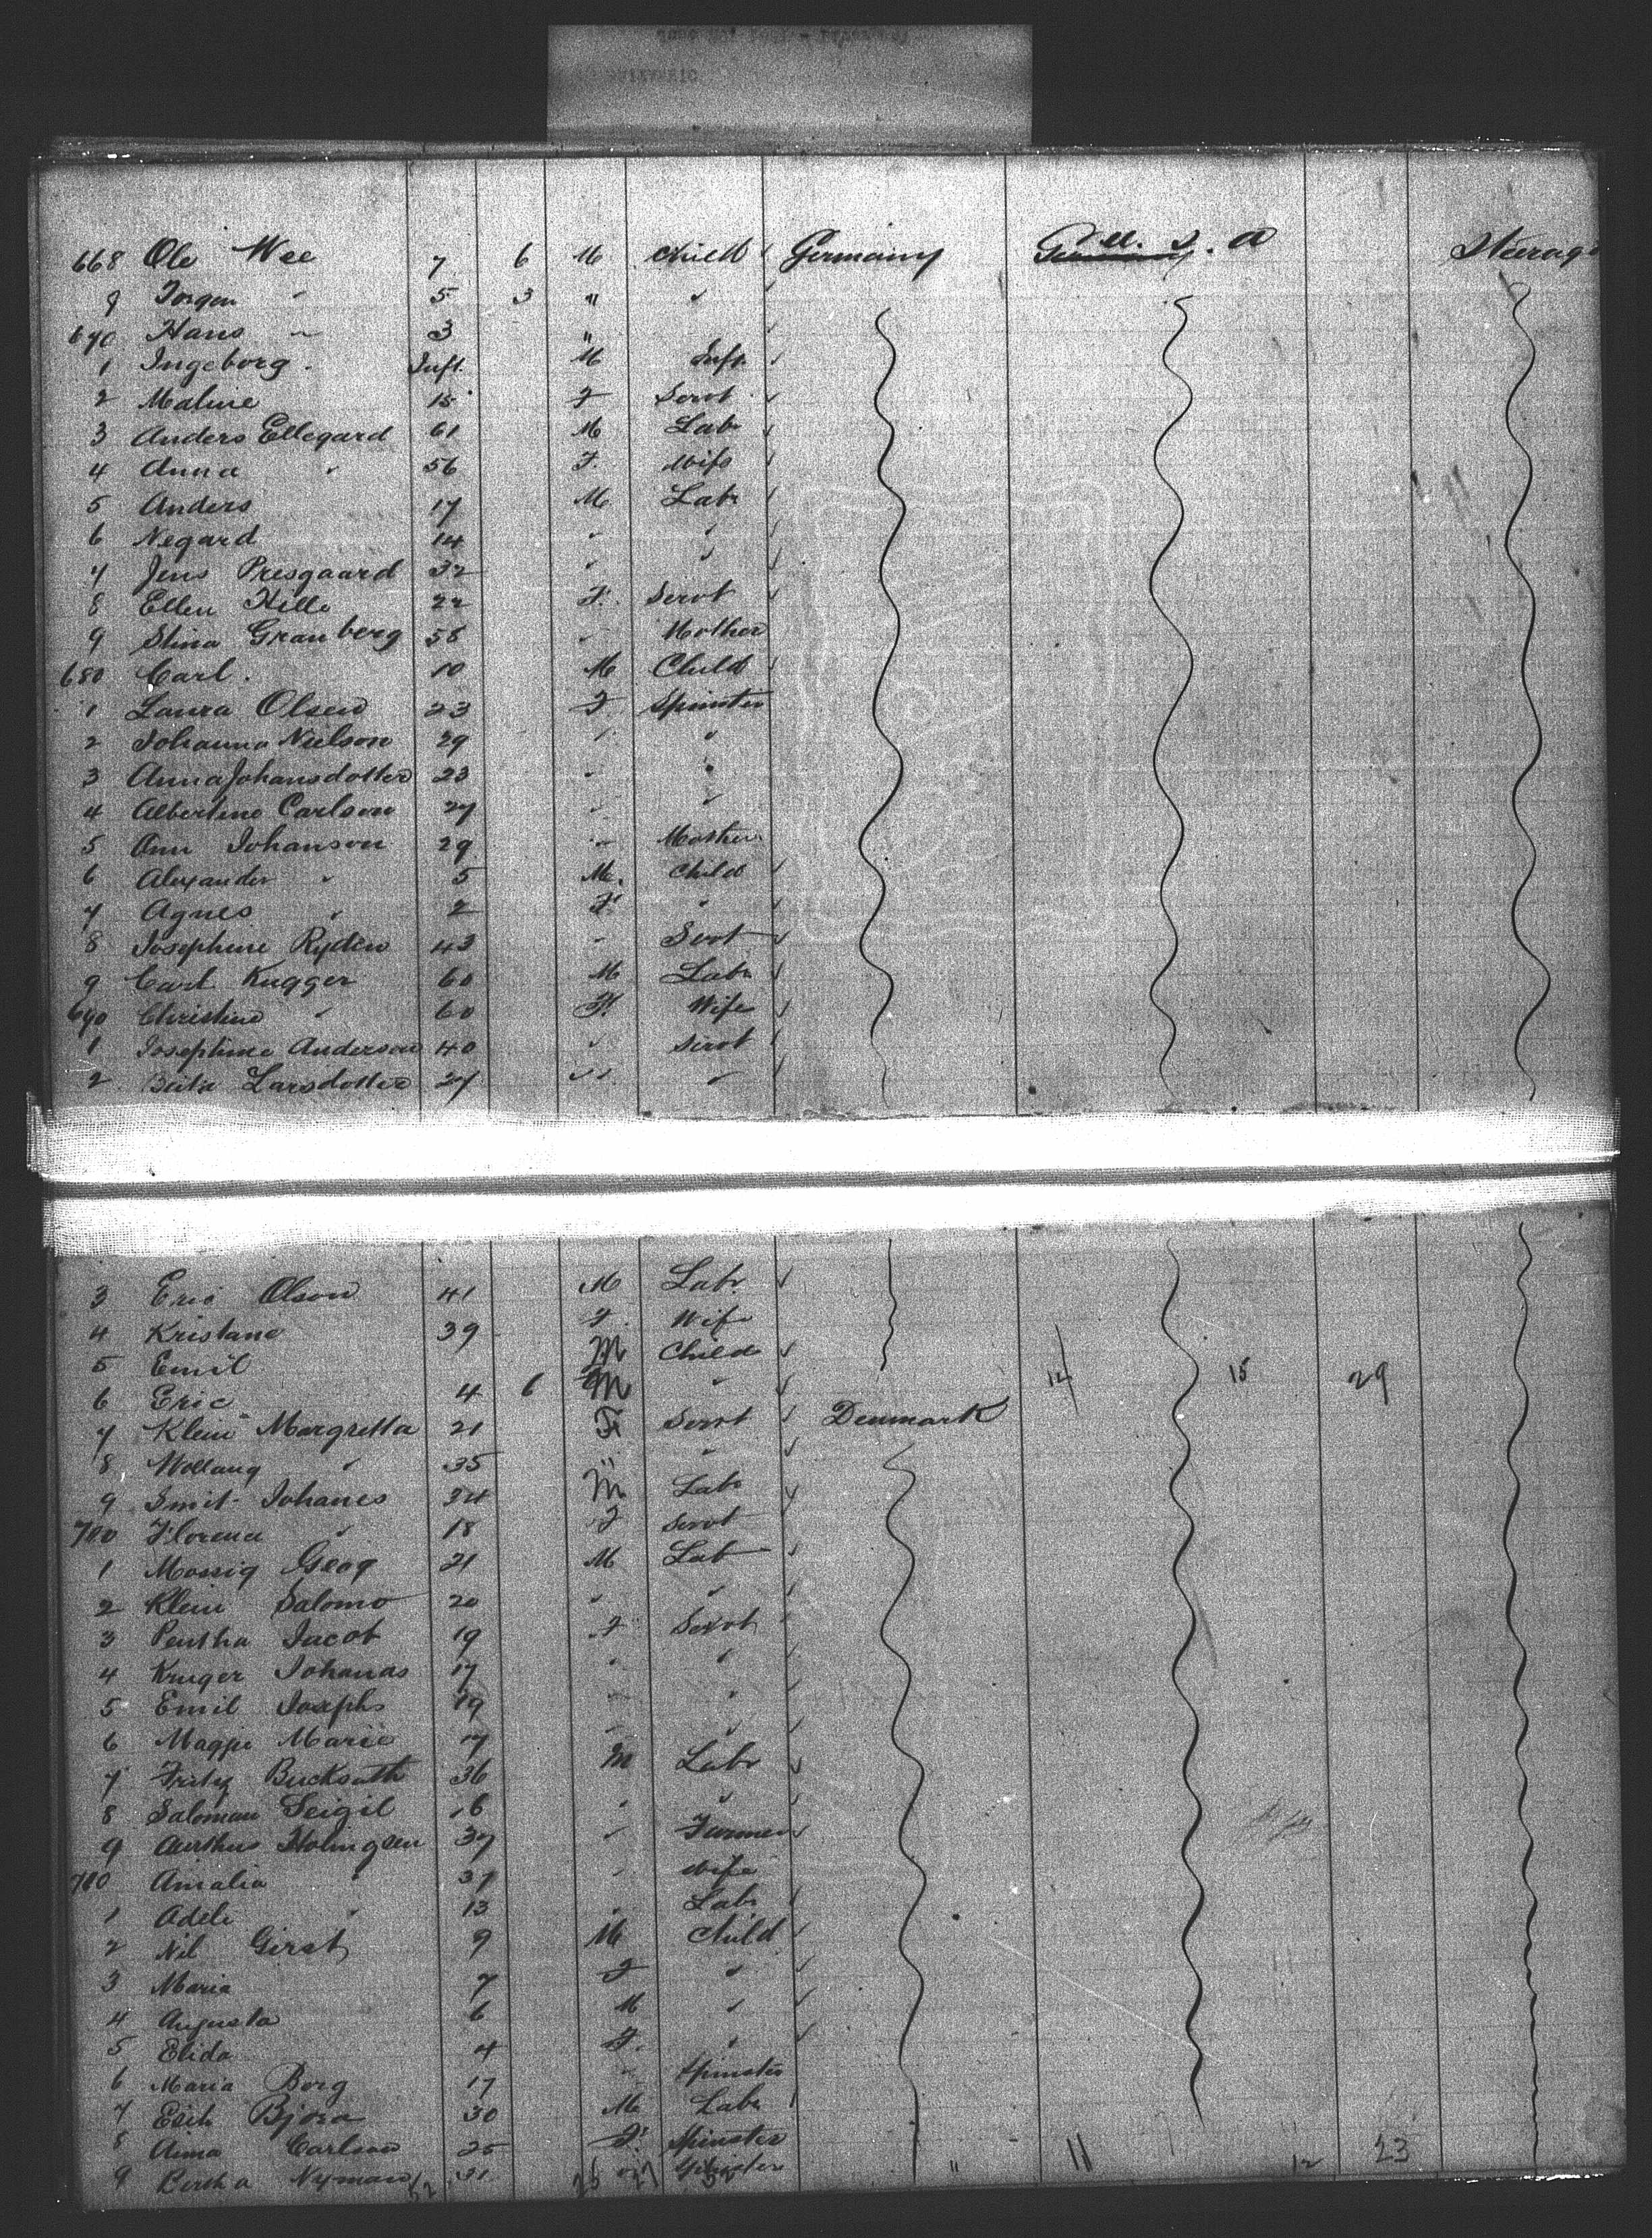 668 Ole Wee 7 6 M Child Germany Germany U. S. A Steerage
9 Torger " 5 3 " "
670 Hans " 3 "
1 Ingeborg. Inft. M Inft.
2 Maline 15 F Servt
3 Anders Ellegard 61 M Labr
4 Anna " 56 F. Wife
5 Anders 17 M Labr
6 Negard 14 " "
7 Jens Presgaard 32 " "
8 Ellen Hille 22 F. Servt
9 Stina Granberg 58 " Mother
680 Carl. 10 M Child
1 Laura Olsen 23 F Spinster
2 Johanna Nielson 29 " "
3 Anna Johansdotter 23 " "
4 Albertine Carlson 27 " "
5 Ann Johanson 29 " Mother
6 Alexander " 5 M. Child
7 Agnes " 2 F. "
8 Josephine Ryden 43 " Servt
9 Carl Kugger 60 M Labr
690 Christine " 60 F. Wife
1 Josephine Anderson 40 " Servt
2 Larsdotter 27 " "
3 Eric Olson 41 M Labr
4 Kristane 39 F. Wife
5 Emil M Child
6 Eric 4 6 M " 14 15 29
7 Klein Margretta 21 F Servt Denmark
8 " 35 " "
9 Smit Johanes 24 M Labr
700 Florena " 18 F Servt
1 Mossig Geog 21 M Lab
2 Klein Salomo 20 " "
3 Pentha Jacob 19 F Servt
4 Kruger Johanas 17 " "
5 Emil Josephs 19 " "
6 Magpi Marie 17 " "
7 Fritz Bucksath 36 M Labr
8 Saloman Seigil 16 " "
9 37 " Farmer
710 Amalia " 37 " Wife
1 Adele " 13 " Labr
2 Nil Girst 9 M Child
3 Maria 7 F "
4 Augusta 6 M "
5 Elida 4 F. "
6 Maria Borg 17 " Spinster
7 Erik Bjora 30 M Labr
8 Anna Carlson 25 F. Spinster 11 12 23
9 Bertha Nyman 31 " Spinster "